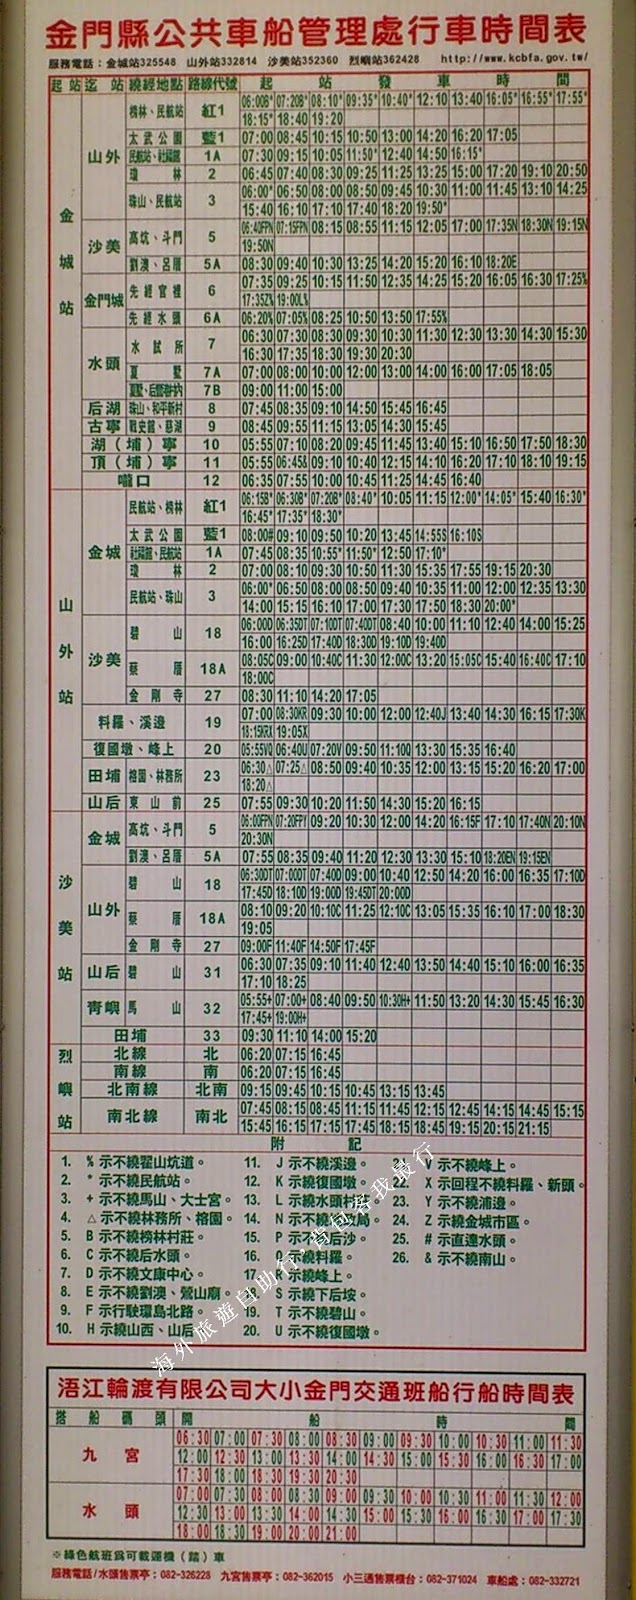 金門縣公共車船管理處行車時間表
服務電話：金城站325548 山外站332814 沙美站352360 烈嶼站362428 http://www.kcbfa.gov.tw/
起站 迄站 繞經地點 路線代號 起站發車時間
金城站
山外 榜林、民航站 紅1 06:00B* 07:20B* 08:10* 09:35* 10:40* 12:10 13:40 16:05* 16:55* 17:55*
18:15* 18:40 19:20
太武公園 藍1 07:00 08:45 10:15 10:50 13:00 14:20 16:20 17:05
民航站、社福館 1A 07:30 09:15 10:05 11:50* 12:40 14:50 16:15*
瓊林 2 06:45 07:40 08:30 09:25 11:25 13:25 15:00 17:20 19:10 20:50
珠山、民航站 3 06:00* 06:50 08:00 08:50 09:45 10:30 11:00 11:45 13:10 14:25
15:40 16:10 17:10 17:40 18:20 19:50*
沙美 高坑、斗門 5 06:40FPN 07:15FPN 08:15 08:55 11:15 12:05 17:00 17:35N 18:30N 19:15N
19:50N
劉澳、呂厝 5A 08:30 09:40 10:30 13:25 14:20 15:20 16:10 18:20E
金門城 先經官裡 6 07:35 09:25 10:15 11:50 12:35 14:25 15:20 16:05 16:30 17:25%
17:35Z% 19:00L%
先經水頭 6A 06:20% 07:05% 08:25 10:50 13:50 17:55%
水頭 水試所 7 06:30 07:30 08:30 09:30 10:30 11:30 12:30 13:30 14:30 15:30
16:30 17:35 18:30 19:30 20:30
夏墅 7A 07:00 08:00 10:00 12:00 13:00 14:00 16:00 17:05 18:05
7B 09:00 11:00 15:00
后湖 珠山、和平新村 8 07:45 08:35 09:10 14:50 15:45 16:45
古寧 戰史館、慈湖 9 08:45 09:55 11:15 13:05 14:05 15:45
湖（埔）寧 10 05:55 07:10 08:20 09:45 11:45 13:40 15:10 16:50 17:50 18:30
頂（埔）寧 11 05:55 06:45& 09:10 10:40 12:15 14:10 16:20 17:10 18:10 19:15
嚨口 12 06:35 07:10 10:00 10:45 11:25 14:45 16:40
山外站
金城 民航站、榜林 紅1 06:15B* 06:30B* 07:20B* 08:40* 10:05 11:15 12:00* 14:05* 15:40 16:30*
16:45* 17:35* 18:30*
太武公園 藍1 08:00# 09:10 09:50 10:20 13:45 14:55S 16:10S
社福館、民航站 1A 07:45 08:35 10:55* 11:50* 12:50 17:10*
瓊林 2 07:00 08:10 09:30 10:50 11:30 15:35 17:55 19:15 20:30
民航站、珠山 3 06:00* 06:50 08:00 08:50 09:40 10:35 11:00 12:00 12:35 13:30
14:00 15:15 16:10 17:00 17:30 17:50 18:30 20:00*
沙美 碧山 18 06:00D 06:35DT 07:10DT 07:40DT 08:40 10:00 11:10 12:40 14:00 15:25
16:00 16:25D 17:40D 18:30D 19:10D 19:40D
蔡厝 18A 08:05C 09:00 10:40C 11:30 12:00C 13:20 15:05C 15:40 16:40C 17:10
18:00C
金剛寺 27 08:30 11:10 14:20 17:05
料羅、溪邊 19 07:00 08:30KR 09:30 10:00 12:00 12:40J 13:40 14:30 16:15 17:30K
18:15KRX 19:05X
復國墩、峰上 20 05:55VQ 06:40U 07:20V 09:50 11:10Q 13:30 15:35 16:40
田埔 榕園、林務所 23 06:30△ 07:25△ 08:50 09:40 10:35 12:00 13:15 15:20 16:20 17:00
18:20△
山后 東山前 25 07:55 09:30 10:20 11:50 14:30 15:20 16:15
沙美站
金城 高坑、斗門 5 06:00FPN 07:20FPY 09:20 10:30 12:00 14:20 16:15F 17:10 17:40N 20:10N
20:30N
劉澳、呂厝 5A 07:55 08:35 09:40 11:20 12:30 13:30 15:10 18:20EN 19:15EN
山外 碧山 18 06:30DT 07:00DT 07:40D 09:00 10:40 12:50 14:20 16:00 16:35 17:10D
17:45D 18:10D 19:00D 19:45DT 20:00D
蔡厝 18A 08:10 09:20 10:10C 11:25 12:10C 13:05 15:35 16:10 17:00 18:30
19:05
金剛寺 27 09:00F 11:40F 14:50F 17:45F
山后 碧山 31 06:30 07:35 09:10 11:40 12:40 13:50 14:40 15:10 16:00 16:35
17:10 18:25
青嶼 馬山 32 05:55+ 07:00+ 08:40 09:50 10:30H+ 11:50 13:20 14:30 15:45 16:30
17:45+ 19:00H+
田埔 33 09:30 11:10 14:00 15:20
烈嶼站
北線 北 06:20 07:15 16:45
南線 南 06:20 07:15 16:45
北南線 北南 09:15 09:45 10:15 10:45 13:15 13:45
南北線 南北 07:45 08:15 08:45 11:15 11:45 12:15 12:45 14:15 14:45 15:15
15:45 16:15 17:15 17:45 18:15 18:45 19:15 20:15 21:15
附記
1. % 示不繞翟山坑道。
2. * 示不繞民航站。
3. + 示不繞馬山、大士宮。
4. △ 示不繞林務所、榕園。
5. B 示不繞榜林村莊。
6. C 示不繞后水頭。
7. D 示不繞文康中心。
8. E 示不繞劉澳、鶯山廟。
9. F 示行駛環島北路。
10. H 示繞山西、山后。
11. J 示不繞溪邊。
12. K 示繞復國墩。
13. L 示繞水頭村莊。
14. N 示不繞 局。
15. P 示不 后沙。
16. Q 示不繞料羅。
17. 示繞峰上。
18. S 示繞下后垵。
19. T 示不繞碧山。
20. U 示不繞復國墩。
21. V 示不繞峰上。
22. X 示回程不繞料羅、新頭。
23. Y 示不繞浦邊。
24. Z 示繞金城市區。
25. # 示直達水頭。
26. & 示不繞南山。
海外旅遊自助行，背包客我最行
浯江輪渡有限公司大小金門交通班船行船時間表
搭船碼頭 開船時間
九宮 06:30 07:00 07:30 08:00 08:30 09:00 09:30 10:00 10:30 11:00 11:30
12:00 12:30 13:00 13:30 14:00 14:30 15:00 15:30 16:00 16:30 17:00
17:30 18:00 18:30 19:30 20:30
水頭 07:00 07:30 08:00 08:30 09:00 09:30 10:00 10:30 11:00 11:30 12:00
12:30 13:00 13:30 14:00 14:30 15:00 15:30 16:00 16:30 17:00 17:30
18:00 18:30 19:00 20:00 21:00
※綠色航班為可載運機（踏）車
服務電話/水頭售票亭：082-326228 九宮售票亭：082-362015 小三通售票櫃台：082-371024 車船處：082-332721